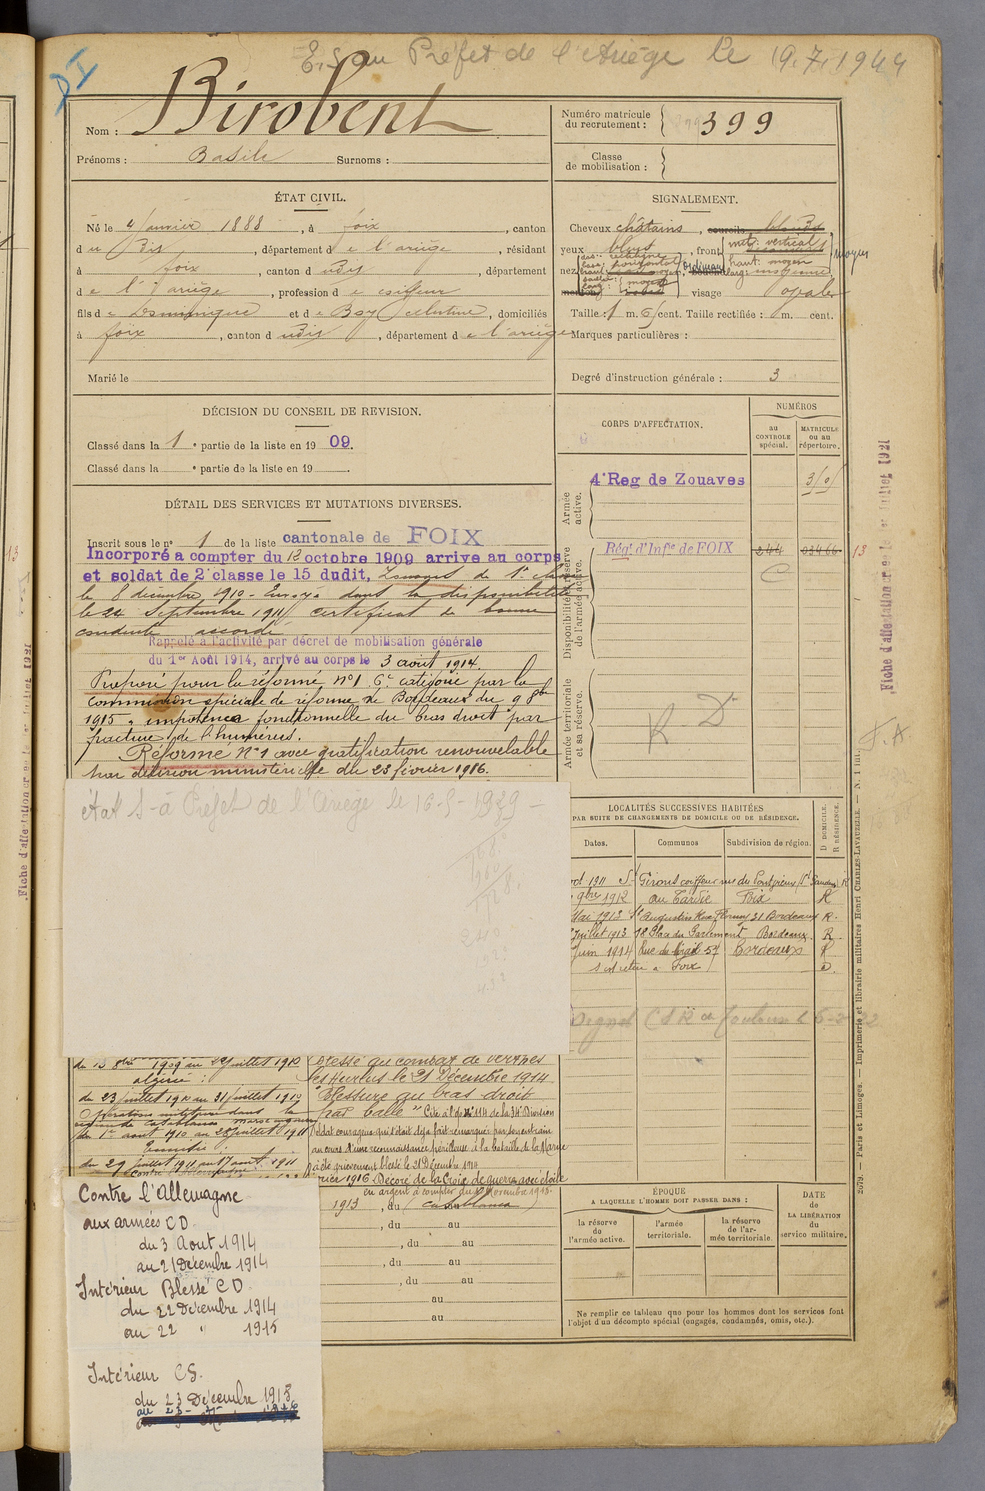 E.S. au Préfet de l'Ariège le 19.7.1944
Nom : Birobent
Prénoms : Basile Surnoms :
Numéro matricule du recrutement : 399
Classe de mobilisation :
ÉTAT CIVIL.
Né le 4 Janvier 1888, à foix, canton
du dis, département de l'ariège, résidant
à foix, canton d udis, département
de l'ariège, profession de coiffeur
fils de Dominique et de Boy Celestine, domiciliés
à foix, canton d udis, département de l'ariège
Marié le
SIGNALEMENT.
Cheveux châtains, sourcils blonds
yeux bleus, front
nez
visage ovale
Taille : 1 m. 6 cent. Taille rectifiée : m. cent.
Marques particulières :
Degré d'instruction générale : 3
DÉCISION DU CONSEIL DE REVISION.
Classé dans la 1e partie de la liste en 1909.
Classé dans la e partie de la liste en 19
DÉTAIL DES SERVICES ET MUTATIONS DIVERSES.
Inscrit sous le n° 1 de la liste cantonale de FOIX
Incorporé a compter du 12 octobre 1909 arrive au corps
et soldat de 2e classe le 15 dudit, Zouaves de 1e classe
le 8 décembre 1910 - Envoyé dans la disponibilité
le 24 Septembre 1911 certificat de bonne
conduite accordé
Rappelé à l'activité par décret de mobilisation générale
du 1er Août 1914, arrivé au corps le 3 août 1914.
Proposé pour la réforme n°1 6e catégorie par la
commission spéciale de réforme de Bordeaux du 9 8bre
1915 "impotence fonctionnelle du bras droit par
fracture de l'humérus.
Réformé N°1 avec gratification renouvelable
par décision ministérielle du 23 février 1916.
CORPS D'AFFECTATION.
NUMÉROS
au CONTROLE spécial.
MATRICULE ou au répertoire.
Armée active.
4e Reg de Zouaves
Disponibilité et réserve de l'armée active.
Régt d'Infie de FOIX 244 03466 13
Armée territoriale et sa réserve.
R D
F.A.
Fiche d'affectation créée le 1er Juillet 1921
état S - à Préfet de l'Ariège le 16-5-1939 -
LOCALITÉS SUCCESSIVES HABITÉES
PAR SUITE DE CHANGEMENTS DE DOMICILE OU DE RÉSIDENCE.
Dates. Communes Subdivision de région. D DOMICILE. R RÉSIDENCE.
oct 1911 St Girons coiffeur rue du Pontpieux St Gaudens R
9bre 1912 au Cardié Foix R
Mai 1913 St Augustin Rue Flornoy 31 Bordeaux R.
Juillet 1913 18 Place du Parlement Bordeaux. R.
Juin 1914 Rue du Mirail 57 Bordeaux R
s'est retiré à Foix D.
du 13 8bre 1909 au 22 juillet 1910
algérie :
du 23 juillet 1910 au 31 juillet 1910
Opérations militaires dans la
région de Casablanca maroc
du 1er août 1910 au 28 juillet 1911
Tunisie :
du 29 juillet 1911 au 17 août 1911
blessé au combat de Perthes
les Hurlus le 21 Décembre 1914
"blessure au bras droit
par balle" Cité à l'o. n° 114 de la 34e Division
Soldat courageux qui s'était déjà fait remarquer par son entrain
au cours d'une reconnaissance périlleuse à la bataille de la Marne
a été grièvement blessé le 21 Décembre 1914
Décoré de la Croix de guerre avec étoile
en argent à compter du Novembre 1915.
1913, du (Casablanca)
, du au
, du au
, du au
, du au
au
au
Contre l'Allemagne
aux armées CD
du 3 Aout 1914
au 21 Décembre 1914
Intérieur Blessé CD.
du 22 Décembre 1914
au 22 " 1915
Intérieur CS.
du 23 Décembre 1915
ÉPOQUE
A LAQUELLE L'HOMME DOIT PASSER DANS :
la réserve de l'armée active.
l'armée territoriale.
la réserve de l'armée territoriale.
DATE DE LA LIBÉRATION du service militaire.
Ne remplir ce tableau que pour les hommes dont les services font
l'objet d'un décompte spécial (engagés, condamnés, omis, etc.).
2579. — Paris et Limoges. — Imprimerie et librairie militaires Henri CHARLES-LAVAUZELLE. — N. 1 int.